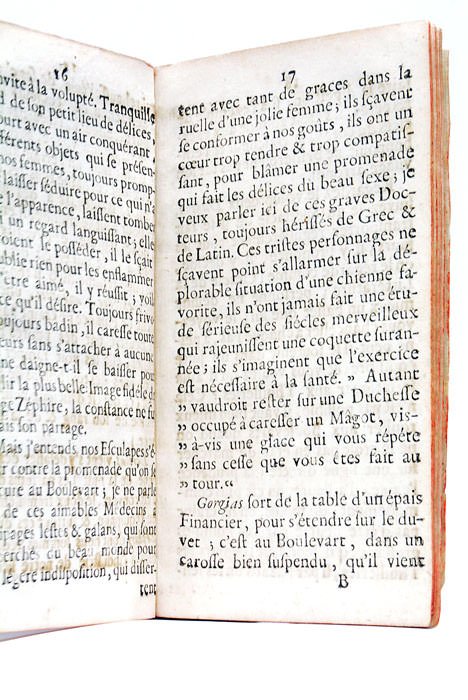 16
nvite à la volupté. Tranquille
d de son petit lieu de délices,
ourt avec un air conquérant
férents objets qui se présen-
nos femmes, toujours promp-
laisser séduire pour ce qui n'a
e l'apparence, laissent tomber
i un regard languissant; elle
oient le posséder, il le sçait
ublie rien pour les enflammer
être aimé, il y réussit; voil
ce qu'il désire. Toujours frivo
oujours badin, il caresse toute
eurs sans s'attacher à aucune
ne daigne-t-il se baisser pou
lir la plus belle. Image fidéle d
ge Zéphire, la constance ne fu
ais son partage.
Mais j'entends nos Esculapes s'é
r contre la promenade qu'on se
cure au Boulevart; je ne parle
de ces aimables Médecins à
pages lestes & galans, qui sont
erchés du beau monde pour
légere indisposition, qui disser-
tent
17
tent avec tant de graces dans la
ruelle d'une jolie femme; ils sçavent
se conformer à nos goûts, ils ont un
cœur trop tendre & trop compatis-
sant, pour blâmer une promenade
qui fait les délices du beau sexe; je
veux parler ici de ces graves Doc-
teurs, toujours hérissés de Grec &
de Latin. Ces tristes personnages ne
sçavent point s'allarmer sur la dé-
plorable situation d'une chienne fa-
vorite, ils n'ont jamais fait une étu-
de sérieuse des siécles merveilleux
qui rajeunissent une coquette suran-
née; ils s'imaginent que l'exercice
est nécessaire à la santé. » Autant
» vaudroit rester sur une Duchesse
» occupé à caresser un Mâgot, vis-
» à-vis une glace qui vous répéte
» sans cesse que vous êtes fait au
» tour.«
Gorgias sort de la table d'un épais
Financier, pour s'étendre sur le du-
vet; c'est au Boulevart, dans un
carosse bien suspendu, qu'il vient
B